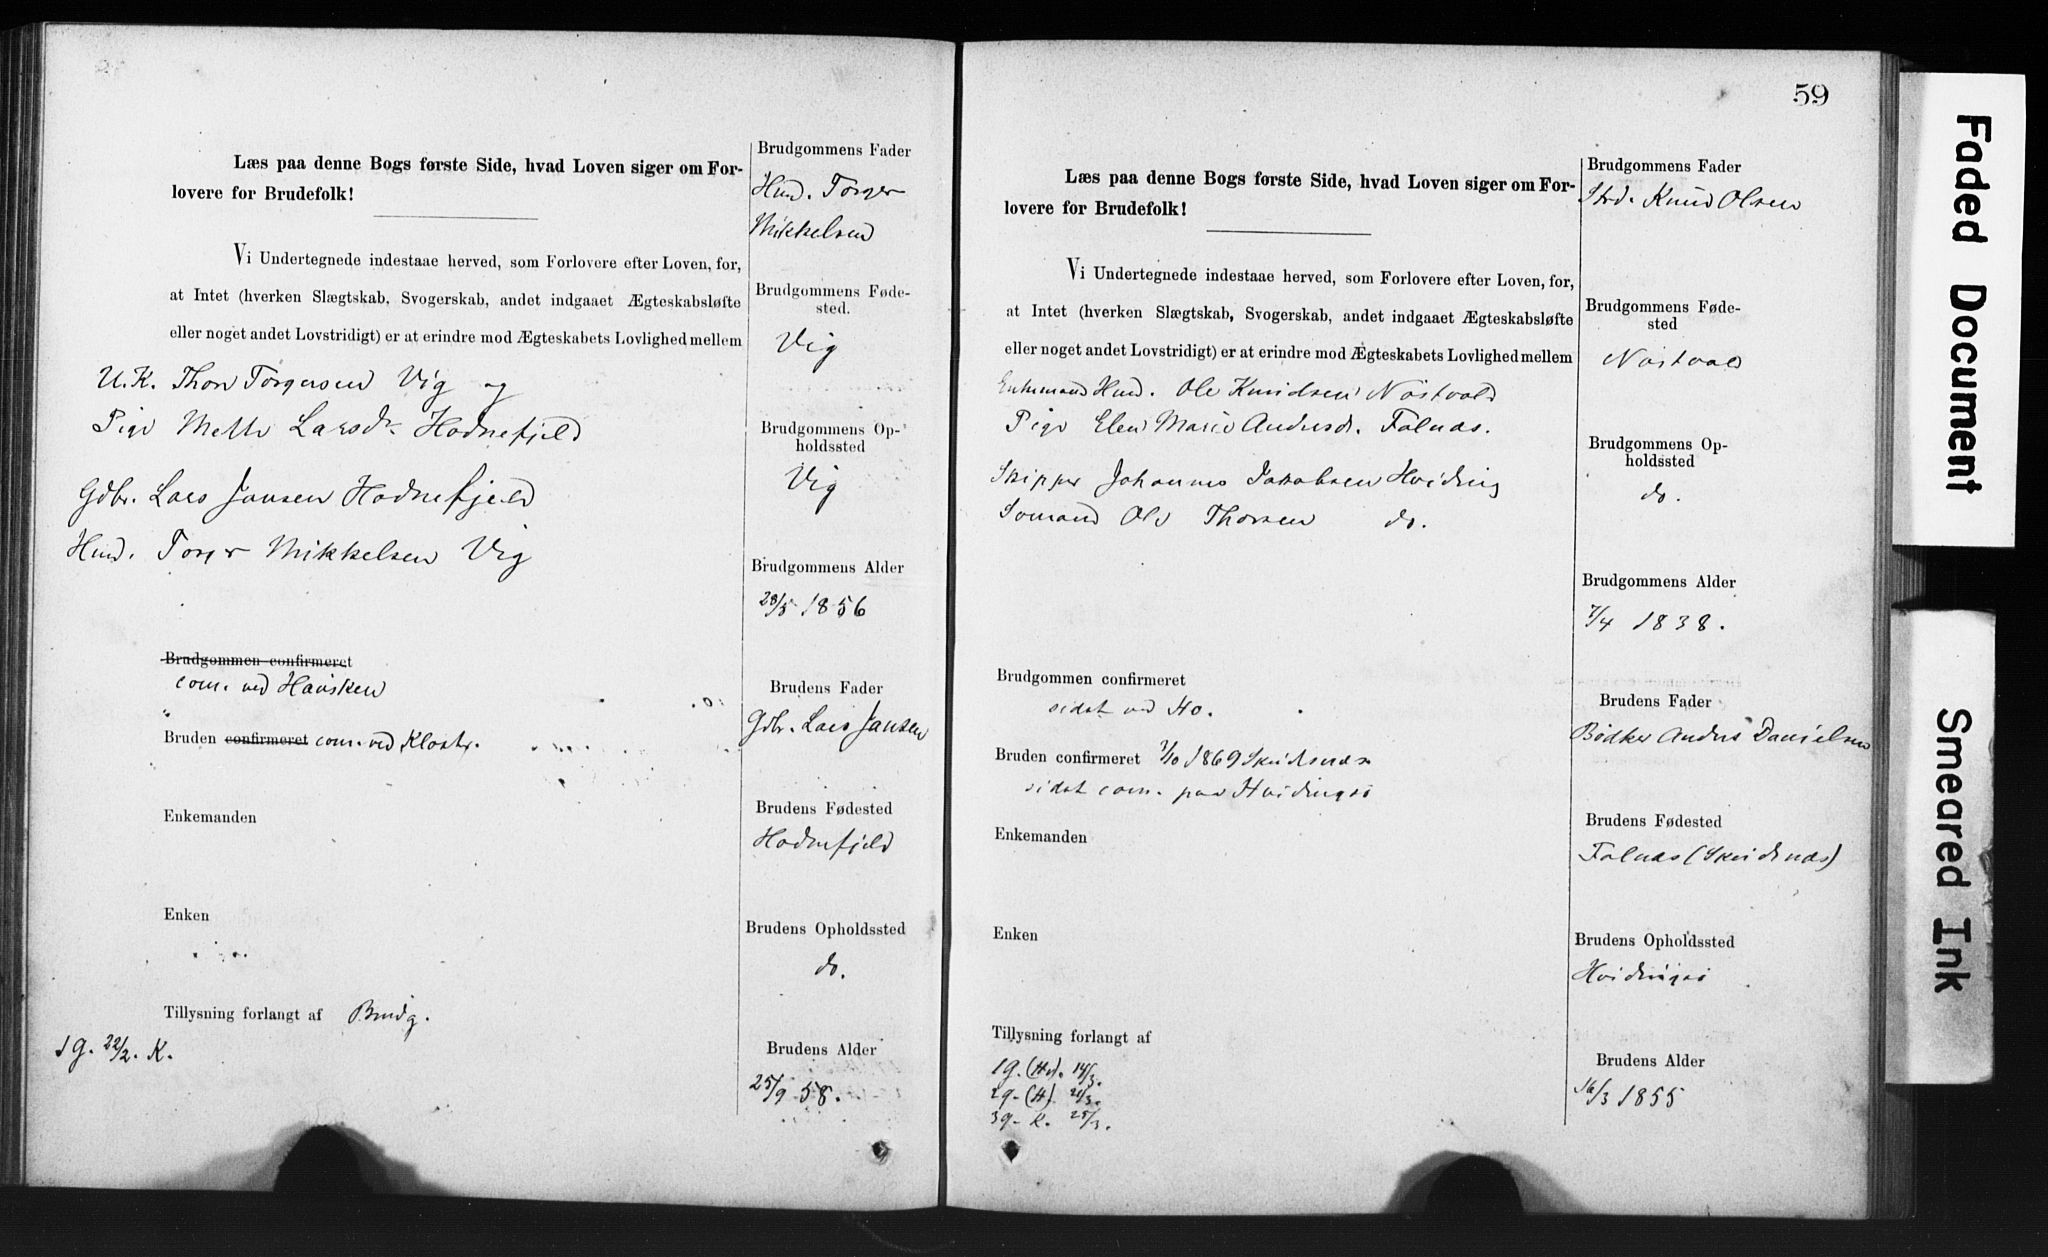 Læs paa denne Bogs første Side, hvad Loven siger om For-
lovere for Brudefolk!
Vi Undertegnede indestaae herved, som Forlovere efter Loven, for,
at Intet (hverken Slægtskab, Svogerskab, andet indgaaet Ægteskabsløfte
eller noget andet Lovstridigt) er at erindre mod Ægteskabets Lovlighed mellem
U.K. Thore Torgersen Vig og
Pige Mette Larsdr. Hodnefjeld
Gdbr. Lars Jansen Hodnefjeld
Hmd. Torger Mikkelsen Vig
Brudgommen confirmeret
com. ved Hausken
Bruden confirmeret com. ved Kloster.
Enkemanden
Enken
Tillysning forlangt af Brudg.
1 g. 22/2. K.
Brudgommens Fader
Hmd. Torger
Mikkelsen
Brudgommens Føde-
sted.
Vig
Brudgommens Op-
holdssted
Vig
Brudgommens Alder
28/5 1856
Brudens Fader
Gdbr. Lars Jansen
Brudens Fødested
Hodnefjeld
Brudens Opholdssted
do.
Brudens Alder
25/9 58.
59
Læs paa denne Bogs første Side, hvad Loven siger om For-
lovere for Brudefolk!
Vi Undertegnede indestaae herved, som Forlovere efter Loven, for,
at Intet (hverken Slægtskab, Svogerskab, andet indgaaet Ægteskabsløfte
eller noget andet Lovstridigt) er at erindre mod Ægteskabets Lovlighed mellem
Enkemand Hmd. Ole Knudsen Nøstvold
Pige Elen Marie Andersdr. Falnæs.
Skipper Johannes Jakobsen Hviding
Sømand Ole Thorsen do.
Brudgommen confirmeret
sidst ved Ho.
Bruden confirmeret 1/10 1869 Skudesnæs
sidst com. paa Hvidingsø
Enkemanden
Enken
Tillysning forlangt af
1g. (Hv). 14/3.
2g. (H) 21/3.
3g. K. 25/3.
Brudgommens Fader
Strd. Knud Olsen
Brudgommens Føde-
sted
Nøstvold
Brudgommens Op-
holdssted
do.
Brudgommens Alder
7/4 1838.
Brudens Fader
Bødker Anders Danielsen
Brudens Fødested
Falnæs (Skudenæs)
Brudens Opholdssted
Hvidingsø
Brudens Alder
16/3 1855
Faded Document
Smeared Ink